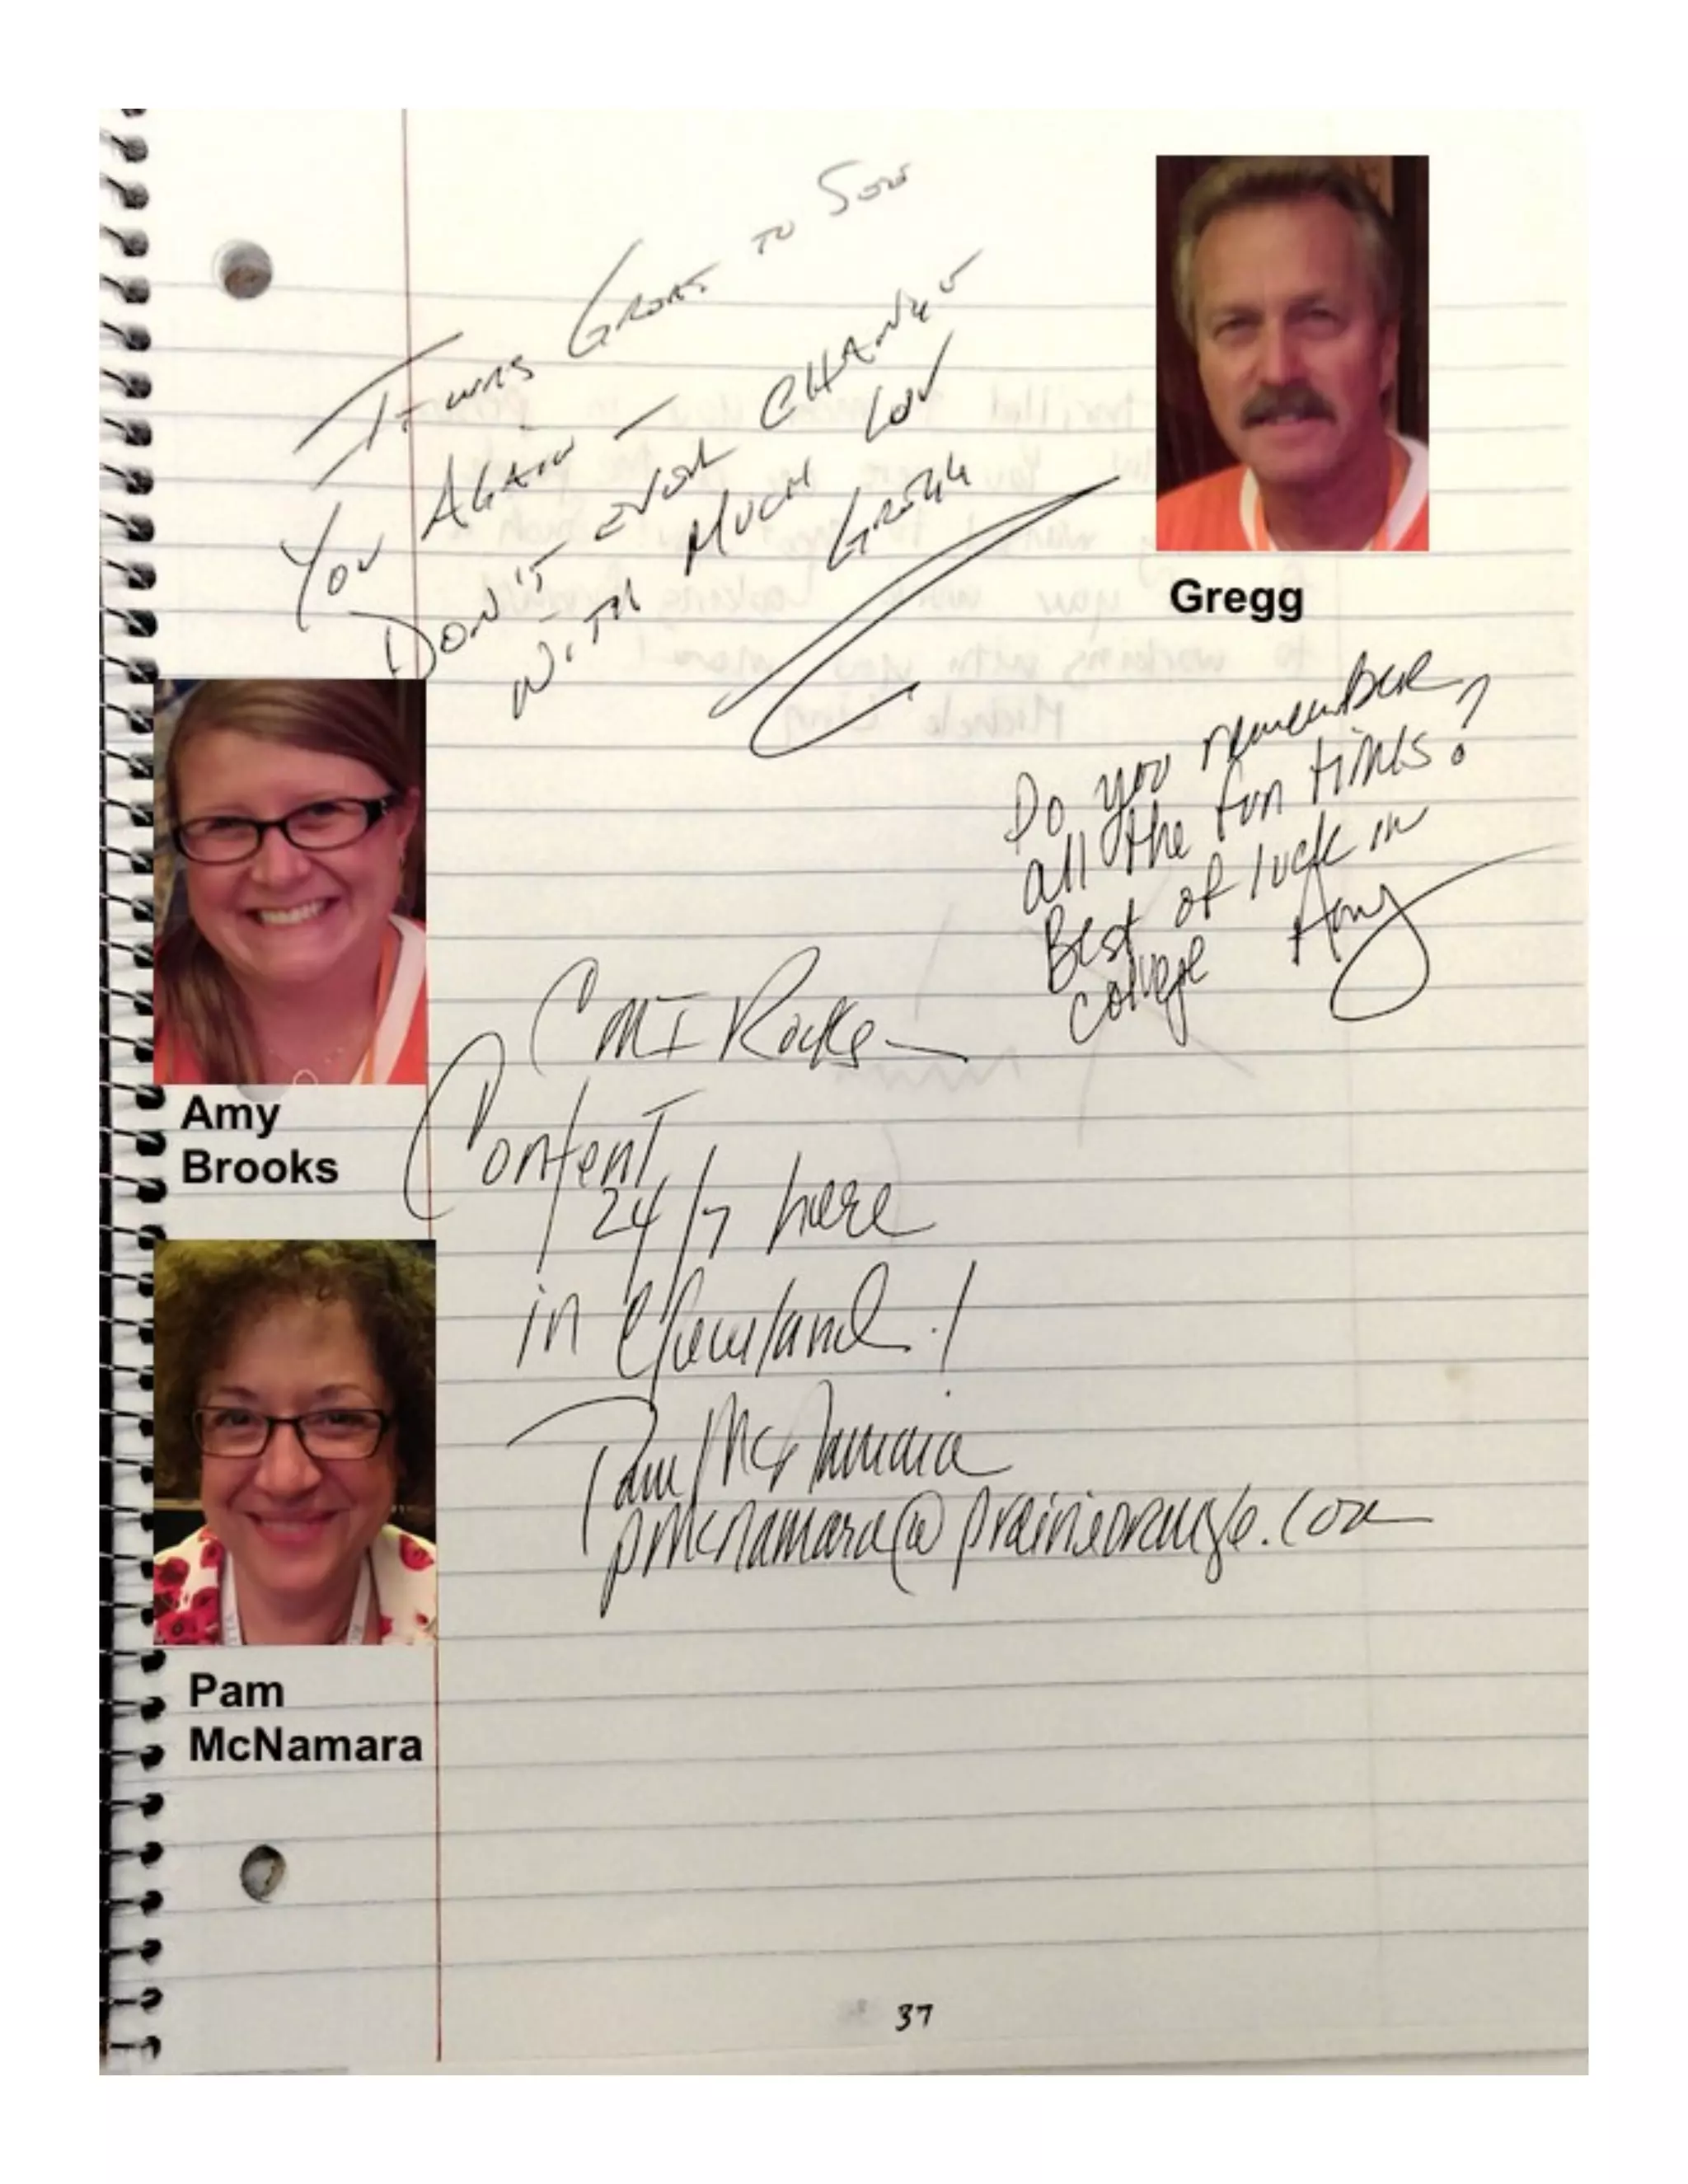 It was Great to See
You Again –
Don't ever change
with much Lov
Gregg
Gregg
Do you remember
all the fun times?
Best of luck in
college Amy
Amy
Brooks
CMI Rocks
Content
24/7 here
in Cleveland!
Pam McNamara
pmcnamara@prairieorange.com
Pam
McNamara
37